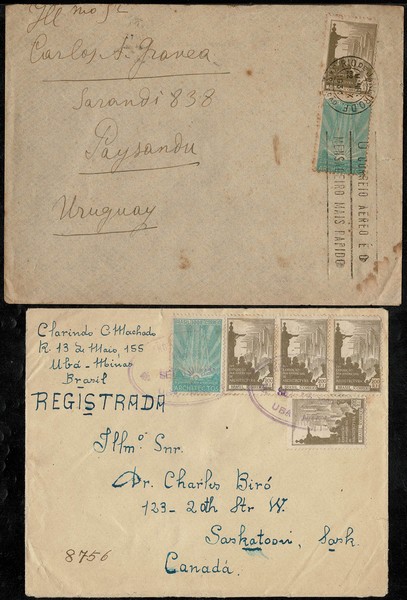 Ill mo Sr
Carlos A. Gravea
Sarandi 838
Paysandu
Uruguay
O CORREIO AEREO É O
MENSAGEIRO MAIS RAPIDO
Clarindo C Machado
R. 13 de Maio, 155
Ubá-Minas
Brasil
REGISTRADA
Illmº Snr.
Dr. Charles Biró
123-20th Str W.
Saskatoon, Sask.
Canadá.
8756
UBA